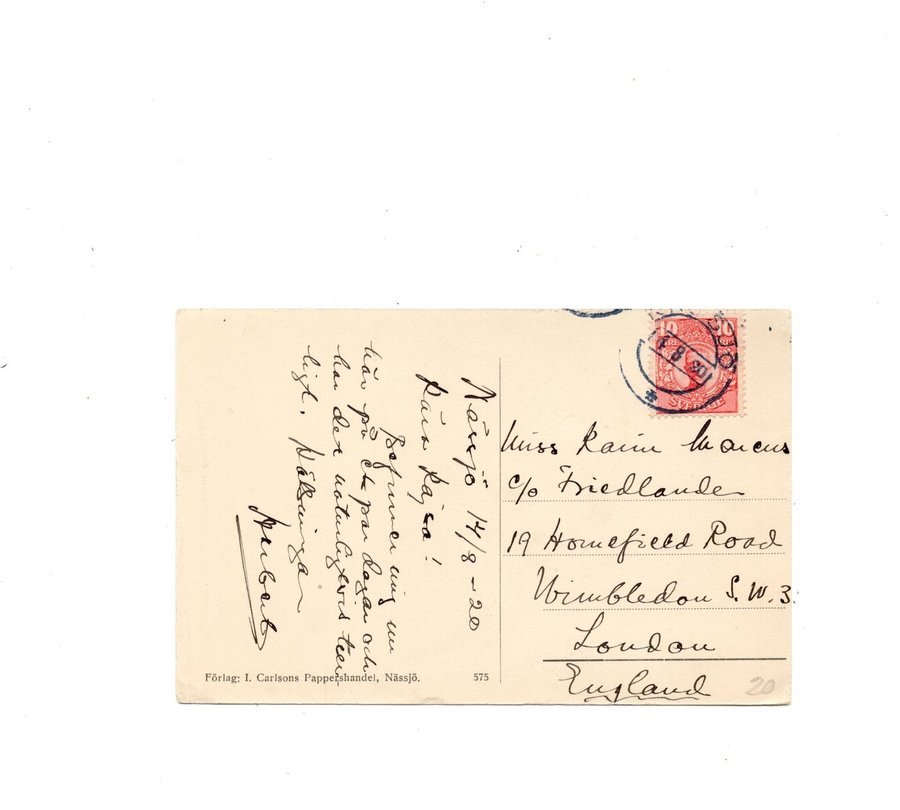 Nässjö 14/8 - 20
Kära Kajsa!
Befinner mig nu
här på ett par dagar och
har det naturligtvis trev
ligt. Hälsningar
10
SVERIGE
8 20
Miss Karin Marcus
c/o Friedlander
19 Homefield Road
Wimbledon S.W.3.
London
England
20
Förlag: I. Carlsons Pappershandel, Nässjö.
575